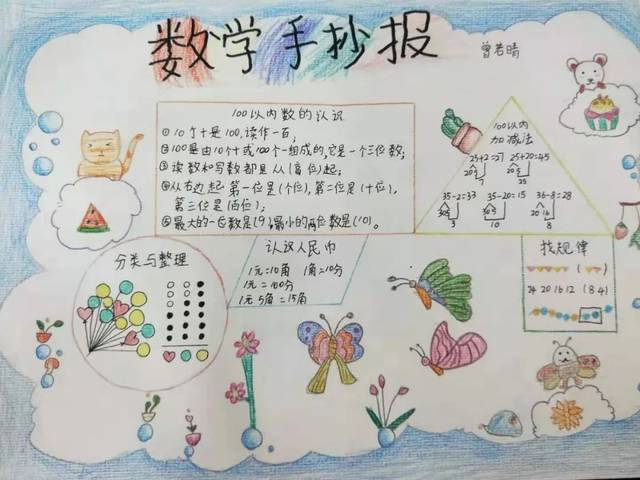 数学手抄报
曾若晴
100以内数的认识
①10个十是100,读作一百;
②100是由10个十或100个一组成的,它是一个三位数;
③读数和写数都是从(高位)起;
④从右边起第一位是(个位),第二位是(十位),
第三位是(百位);
⑤最大的一位数是(9),最小的两位数是(10)。
100以内
加减法
25+2=27 25+20=45
35-2=33 35-20=15 36-8=28
3 10 8
分类与整理
认识人民币
1元=10角 1角=10分
1元=100分
1元5角=15角
找规律
24 20 16 12 (8 4)